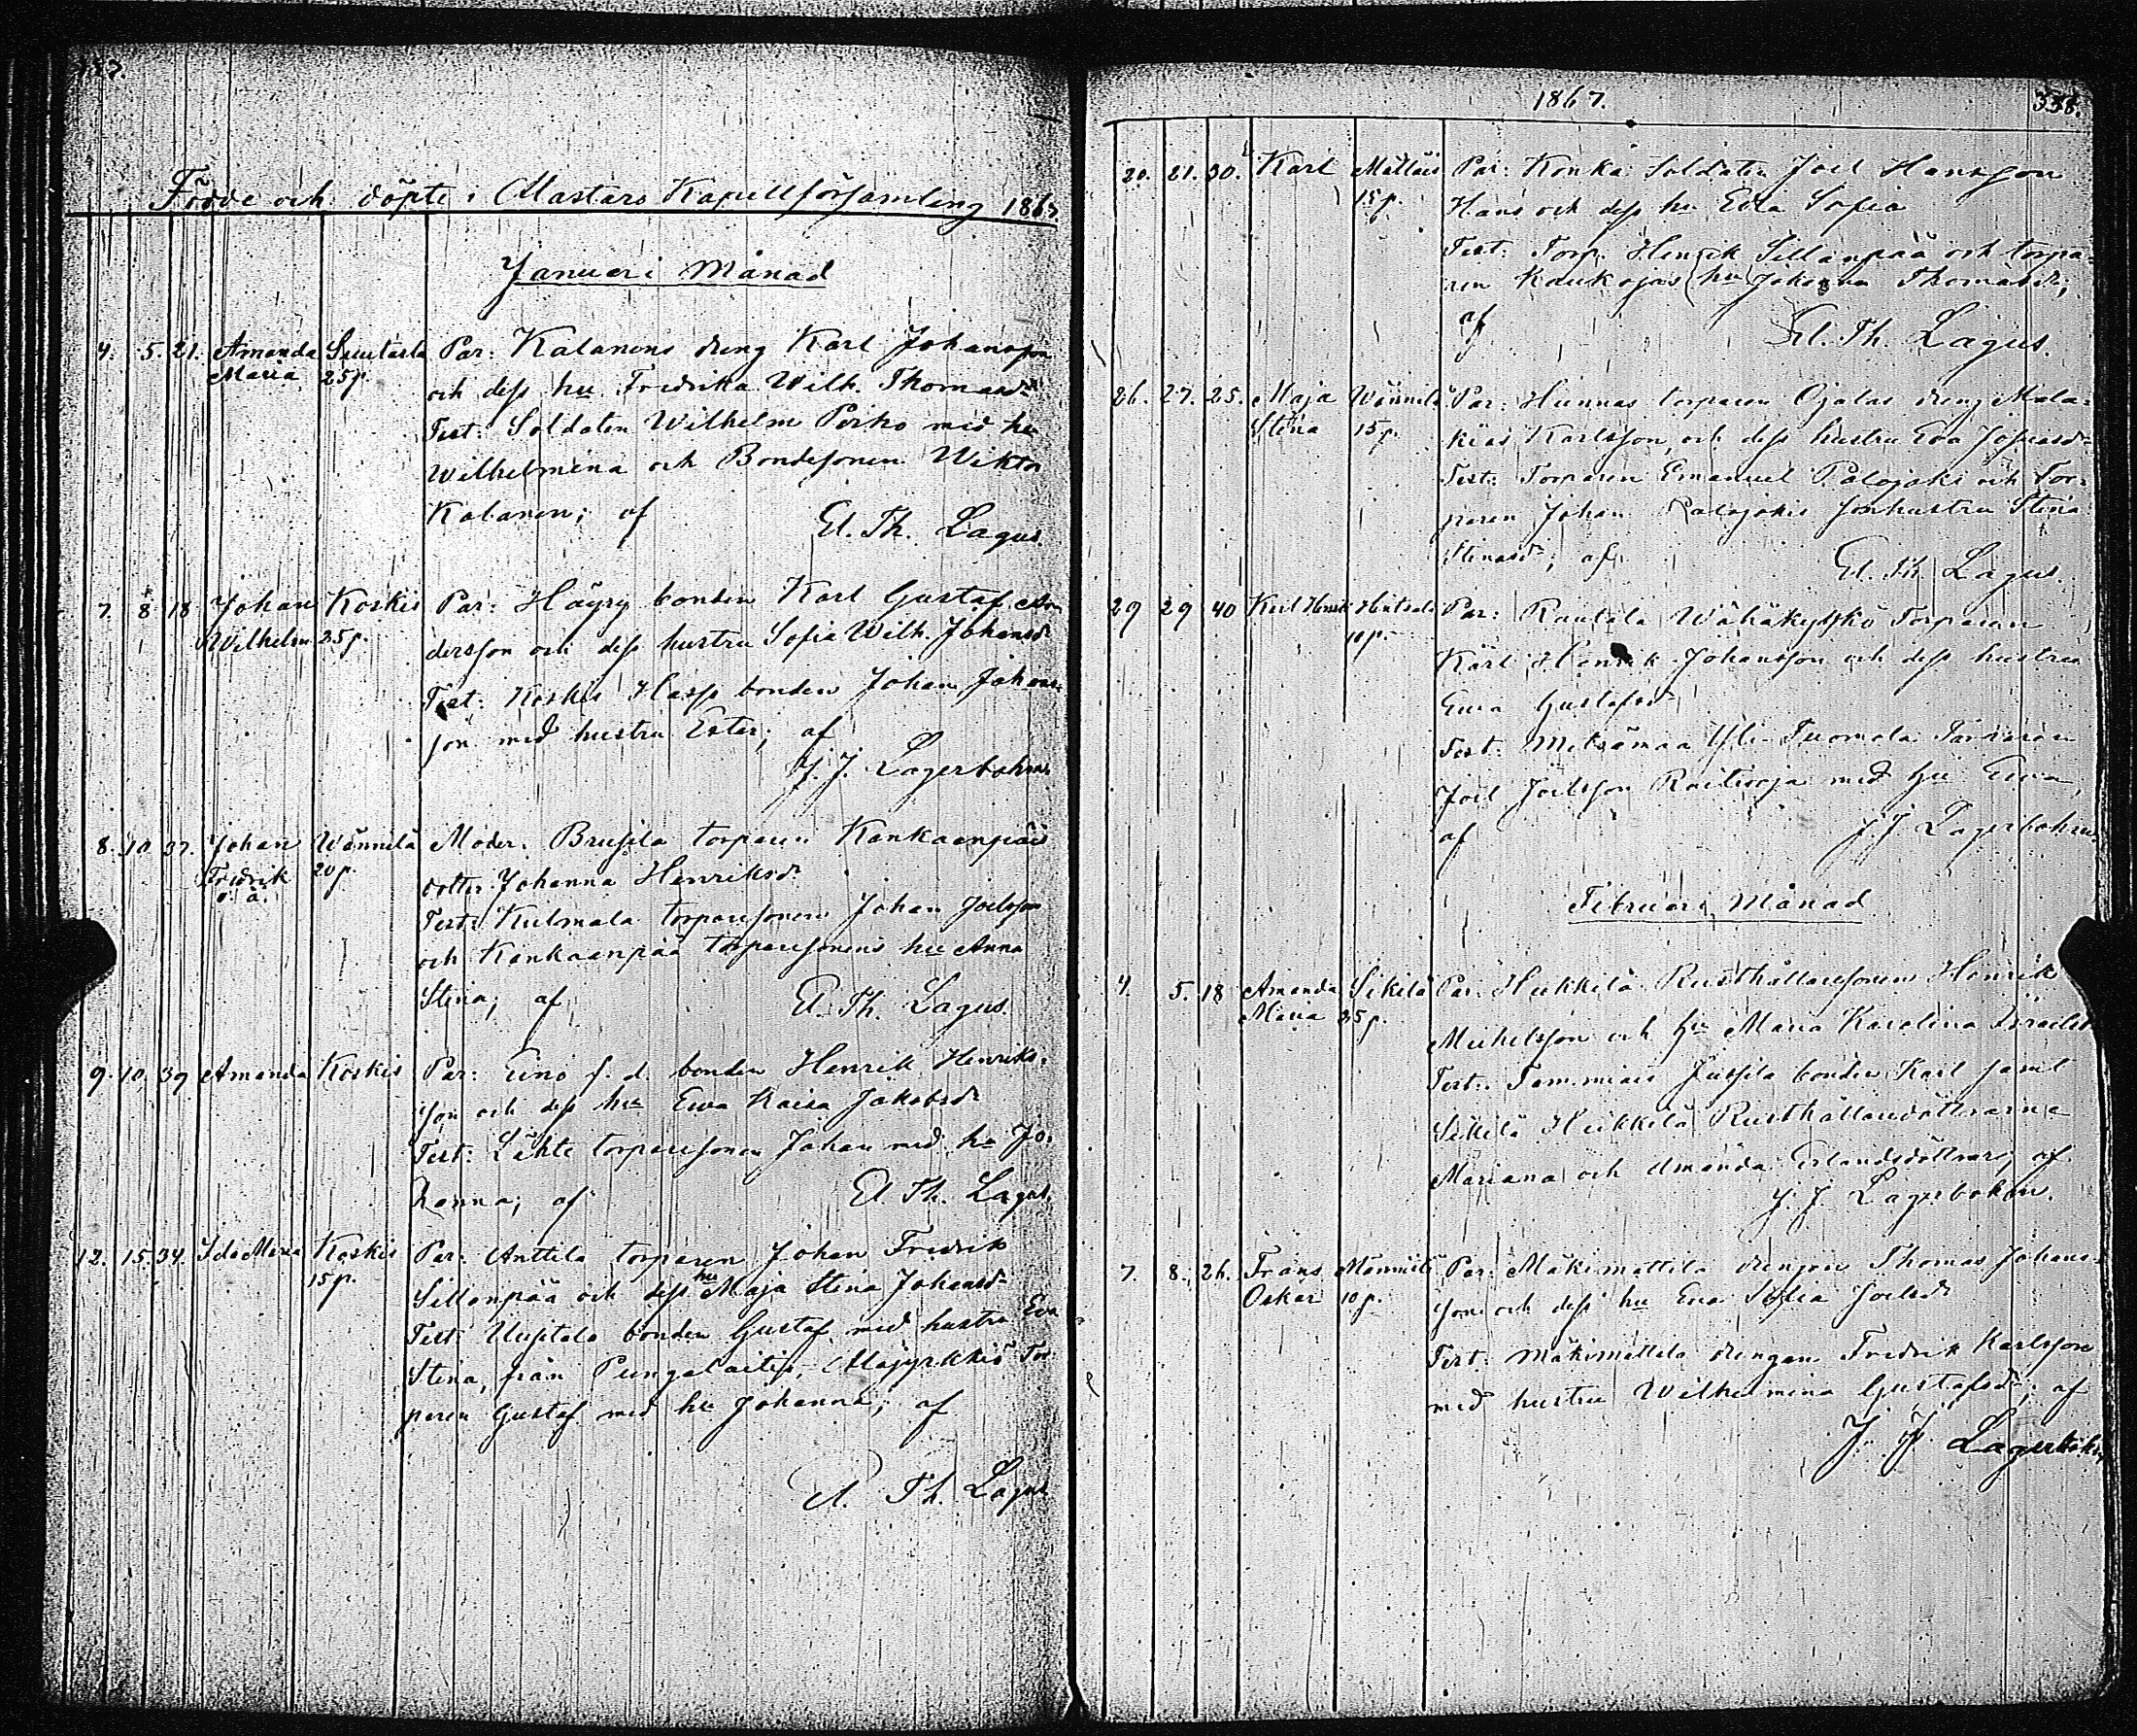 Födde och döpte i Mastars Kapellförsamling 1867
Januari Månad
4. 5. 21. Amanda Maria 25 p. Par: Kalanens dreng Karl Johansson
och dess hu Fredrika Wilh. Thomasdr
Test: Soldaten Wilhelm Pirho med hu
Wilhelmina och Bondesonen Wiktor
Kalanen; af El. Th. Lagus.
7. 8 18 Johan Wilhelm Koskis 25 p. Par: Häyry bonden Karl Gustaf An
dersson och dess hustru Sofia Wilh. Johansdr
Test: Koskis Harp bonden Johan Johans
son med hustru Ester; af
J. J. Lagerbohm
8. 10. 37. Johan Fredrik o. ä. Wännilä 20 p. Moder: Brusila torparen Kankaanpää
dotter Johanna Henriksdr
Test: Kulmala torparesonen Johan Joelsson
och Kankaanpää torparesonens hu Anna
Stina; af El. Th. Lagus.
9. 10. 39 Amanda Koskis Par: Eino f. d. bonden Henrik Henriks-
son och dess hu Ewa Kaisa Jakobsdr
Test: Lähte torparesonen Johan med hu Jo-
hanna; af El. Th. Lagus.
12. 15. 34. Ida Maria Koskis 15 p. Par: Anttila torparen Johan Fredrik
Sillanpää och dess hu Maja Stina Johansdr
Test: Uusitalo bonden Gustaf med hustru Eva
Stina, från Pungalaitis, Tor
paren Gustaf med hu Johanna; af
El. Th. Lagus
1867. 338.
20. 21. 30. Karl Mattais 15 p. Par: Konka Soldaten Joel Hansson
Hans och dess hu Eva Sofia
Test: Torp. Henrik Sillanpää och torpa-
ren Kaukojas hu Johanna Thomasdr;
af El. Th. Lagus.
26. 27. 25. Maja Stina Wännilä 15 p. Par: Hunnas torparen Ojalas dreng Mala-
kias Karlsson och dess hustru Eva Josuasdr
Test: Torparen Emanuel Palojoki och Tor-
paren Johan Palojokis sonhustru Stina
Stinasdr; af El. Th. Lagus.
29 29 40 Karl Henrik 10 p. Par: Rautala Wähäkyskö Torparen
Karl Henrik Johansson och dess hustru
Ewa Gustafsdr
Test: Metsämaa Yli-Tuomola
Joel Joelsson Raitioja med hu Ewa
af J. J. Lagerbohm.
Februari Månad
4. 5. 18 Amanda Maria Sikilä 25 p. Par: Heikkilä Rusthållaresonen Henrik
Michelsson och hu Maria Karolina Israelsdr
Test: Tammiais Jussila bonden Karl samt
Sikilä Heikkilä Rusthållaredöttrarne
Mariana och Amanda Erlandsdöttrar; af
J. J. Lagerbohm.
7 8. 26. Frans Oskar 10 p. Par: Mäkimattila drengen Thomas Johans-
son och dess hu Eva Sofia Joelsdr
Test: Mäkimattila drengen Fredrik Karlsson
med hustru Wilhelmina Gustafsdr; af
J. J. Lagerbohm